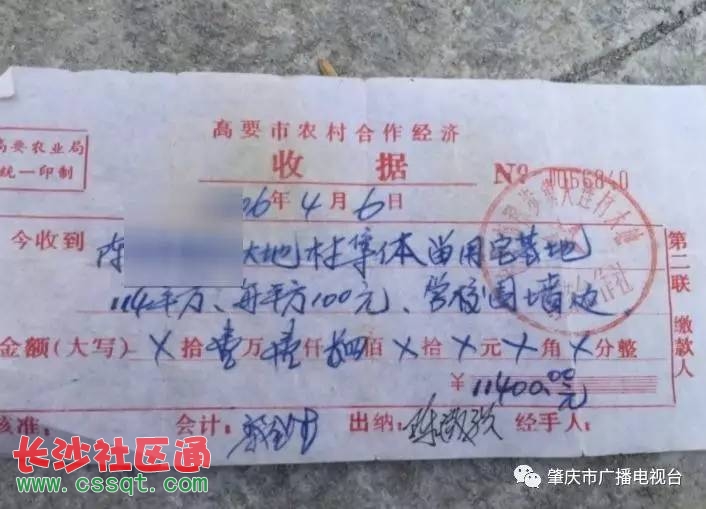 高要市农村合作经济
高要农业局
统一印制
收 据
06年4月6日
今收到
大地村集体留用宅基地
114平方、每平方100元、学校围墙边
第二联 缴款人
金额(大写) X 拾 壹 万 壹 仟 肆 佰 X 拾 X 元 X 角 X 分整
¥ 11400.00元
核准: 会计: 出纳: 经手人:
长沙社区通
www.cssqt.com
肇庆市广播电视台